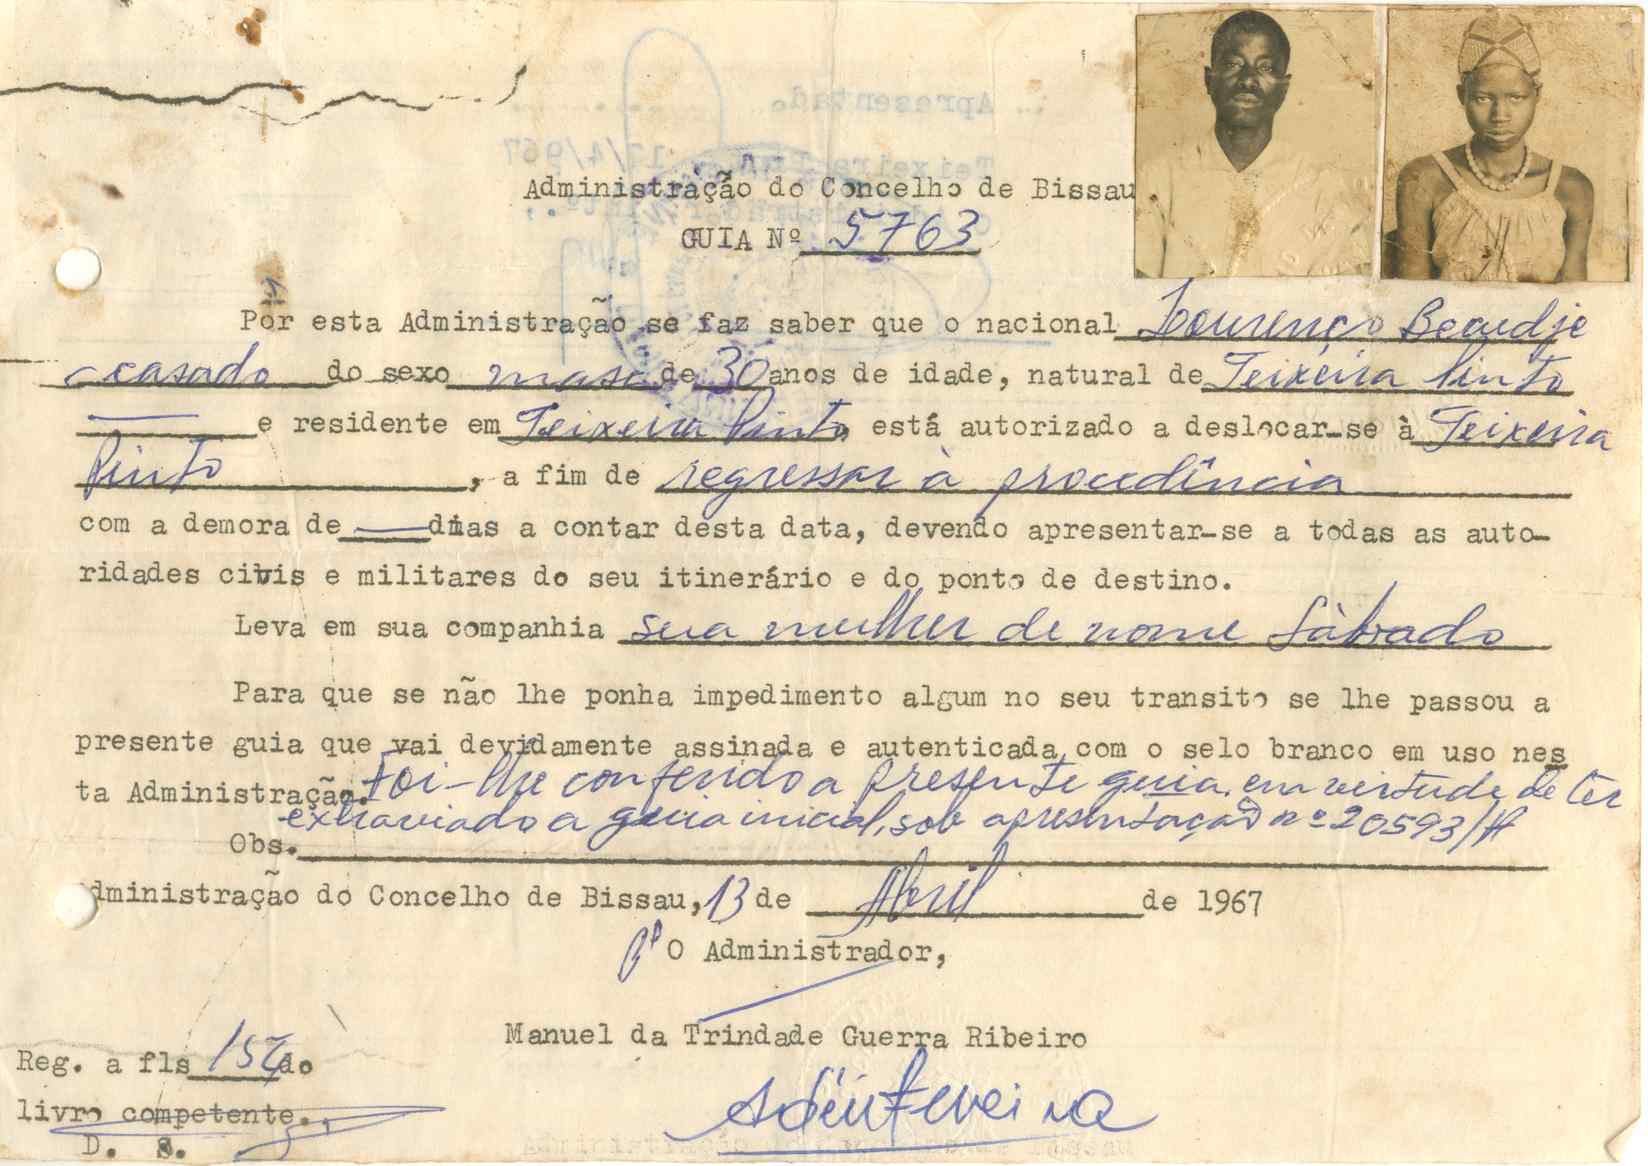 Administração do Concelho de Bissau
GUIA Nº 5763
Por esta Administração se faz saber que o nacional Lourenço
casado do sexo masc. de 30 anos de idade, natural de Teixeira Pinto
e residente em Teixeira Pinto está autorizado a deslocar-se à Teixeira
Pinto, a fim de regressar à procedência
com a demora de — dias a contar desta data, devendo apresentar-se a todas as auto-
ridades civis e militares do seu itinerário e do ponto de destino.
Leva em sua companhia sua mulher de nome Sábado
Para que se não lhe ponha impedimento algum no seu transito se lhe passou a
presente guia que vai devidamente assinada e autenticada com o selo branco em uso nes
ta Administração. Foi-lhe conferido a presente guia, em virtude de ter
extraviado a guia inicial, sob apresentação nº 20593/A
Obs.
dministração do Concelho de Bissau, 13 de Abril de 1967
O Administrador,
Manuel da Trindade Guerra Ribeiro
Reg. a fls do
livro competente.
D. S.